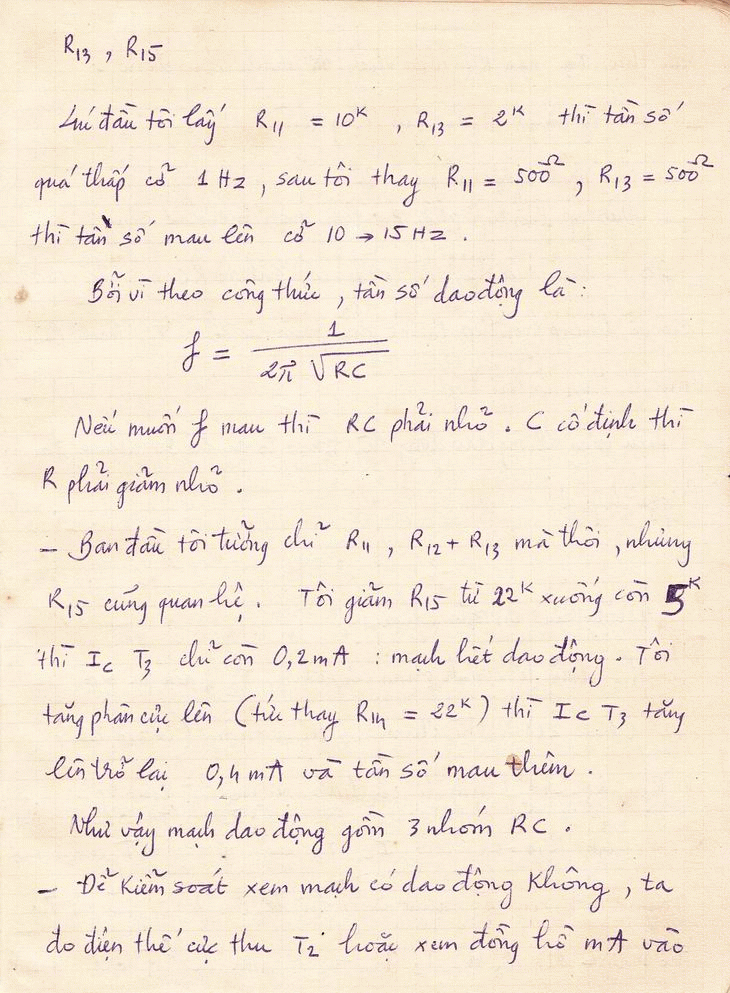 R13 , R15
Lúc đầu tôi lấy R11 = 10K , R13 = 2K thì tần số
quá thấp cỡ 1 Hz , sau tôi thay R11 = 500Ω , R13 = 500Ω
thì tần số mau lên cỡ 10 → 15 Hz .
Bởi vì theo công thức , tần số dao động là :
f = 1 / (2π √RC)
Nếu muốn f mau thì RC phải nhỏ . C cố định thì
R phải giảm nhỏ .
– Ban đầu tôi tưởng chỉ R11 , R12 + R13 mà thôi , nhưng
R15 cũng quan hệ . Tôi giảm R15 từ 22K xuống còn 5K
thì Ic T3 chỉ còn 0,2 mA : mạch hết dao động . Tôi
tăng phân cực lên (tức thay R14 = 22K) thì Ic T3 tăng
lên trở lại 0,4 mA và tần số mau thêm .
Như vậy mạch dao động gồm 3 nhóm RC .
– Để kiểm soát xem mạch có dao động không , ta
đo điện thế cực thu T2 hoặc xem đồng hồ mA vào